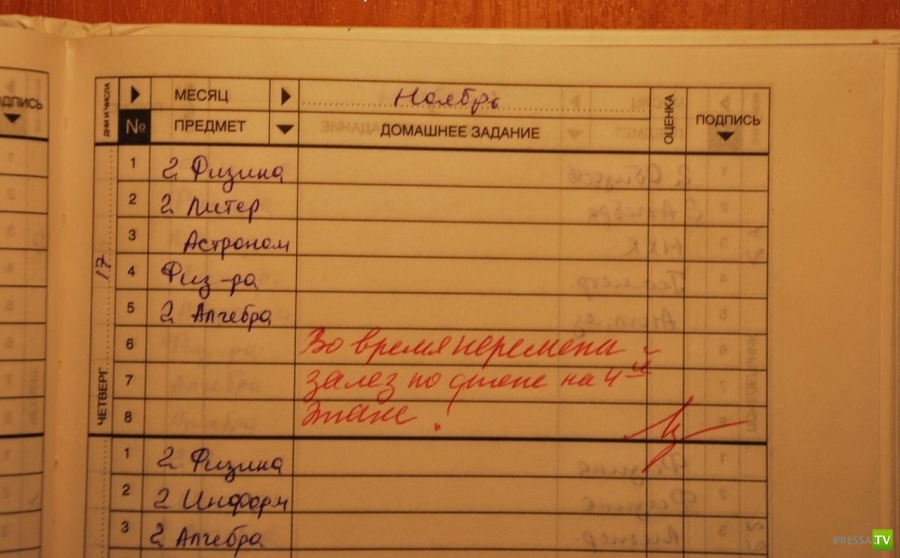 ДПИСЬ
ДНИ И ЧИСЛА
МЕСЯЦ Ноябрь
№ ПРЕДМЕТ ДОМАШНЕЕ ЗАДАНИЕ ОЦЕНКА ПОДПИСЬ
ЧЕТВЕРГ 17
1 2 Физика
2 2 Литер
3 Астроном
4 Физ-ра
5 2 Алгебра
6 Во время перемены
7 залез по стене на 4ый
8 этаж!
1 2 Физика
2 2 Информ
3 2 Алгебра
PRESSA.TV